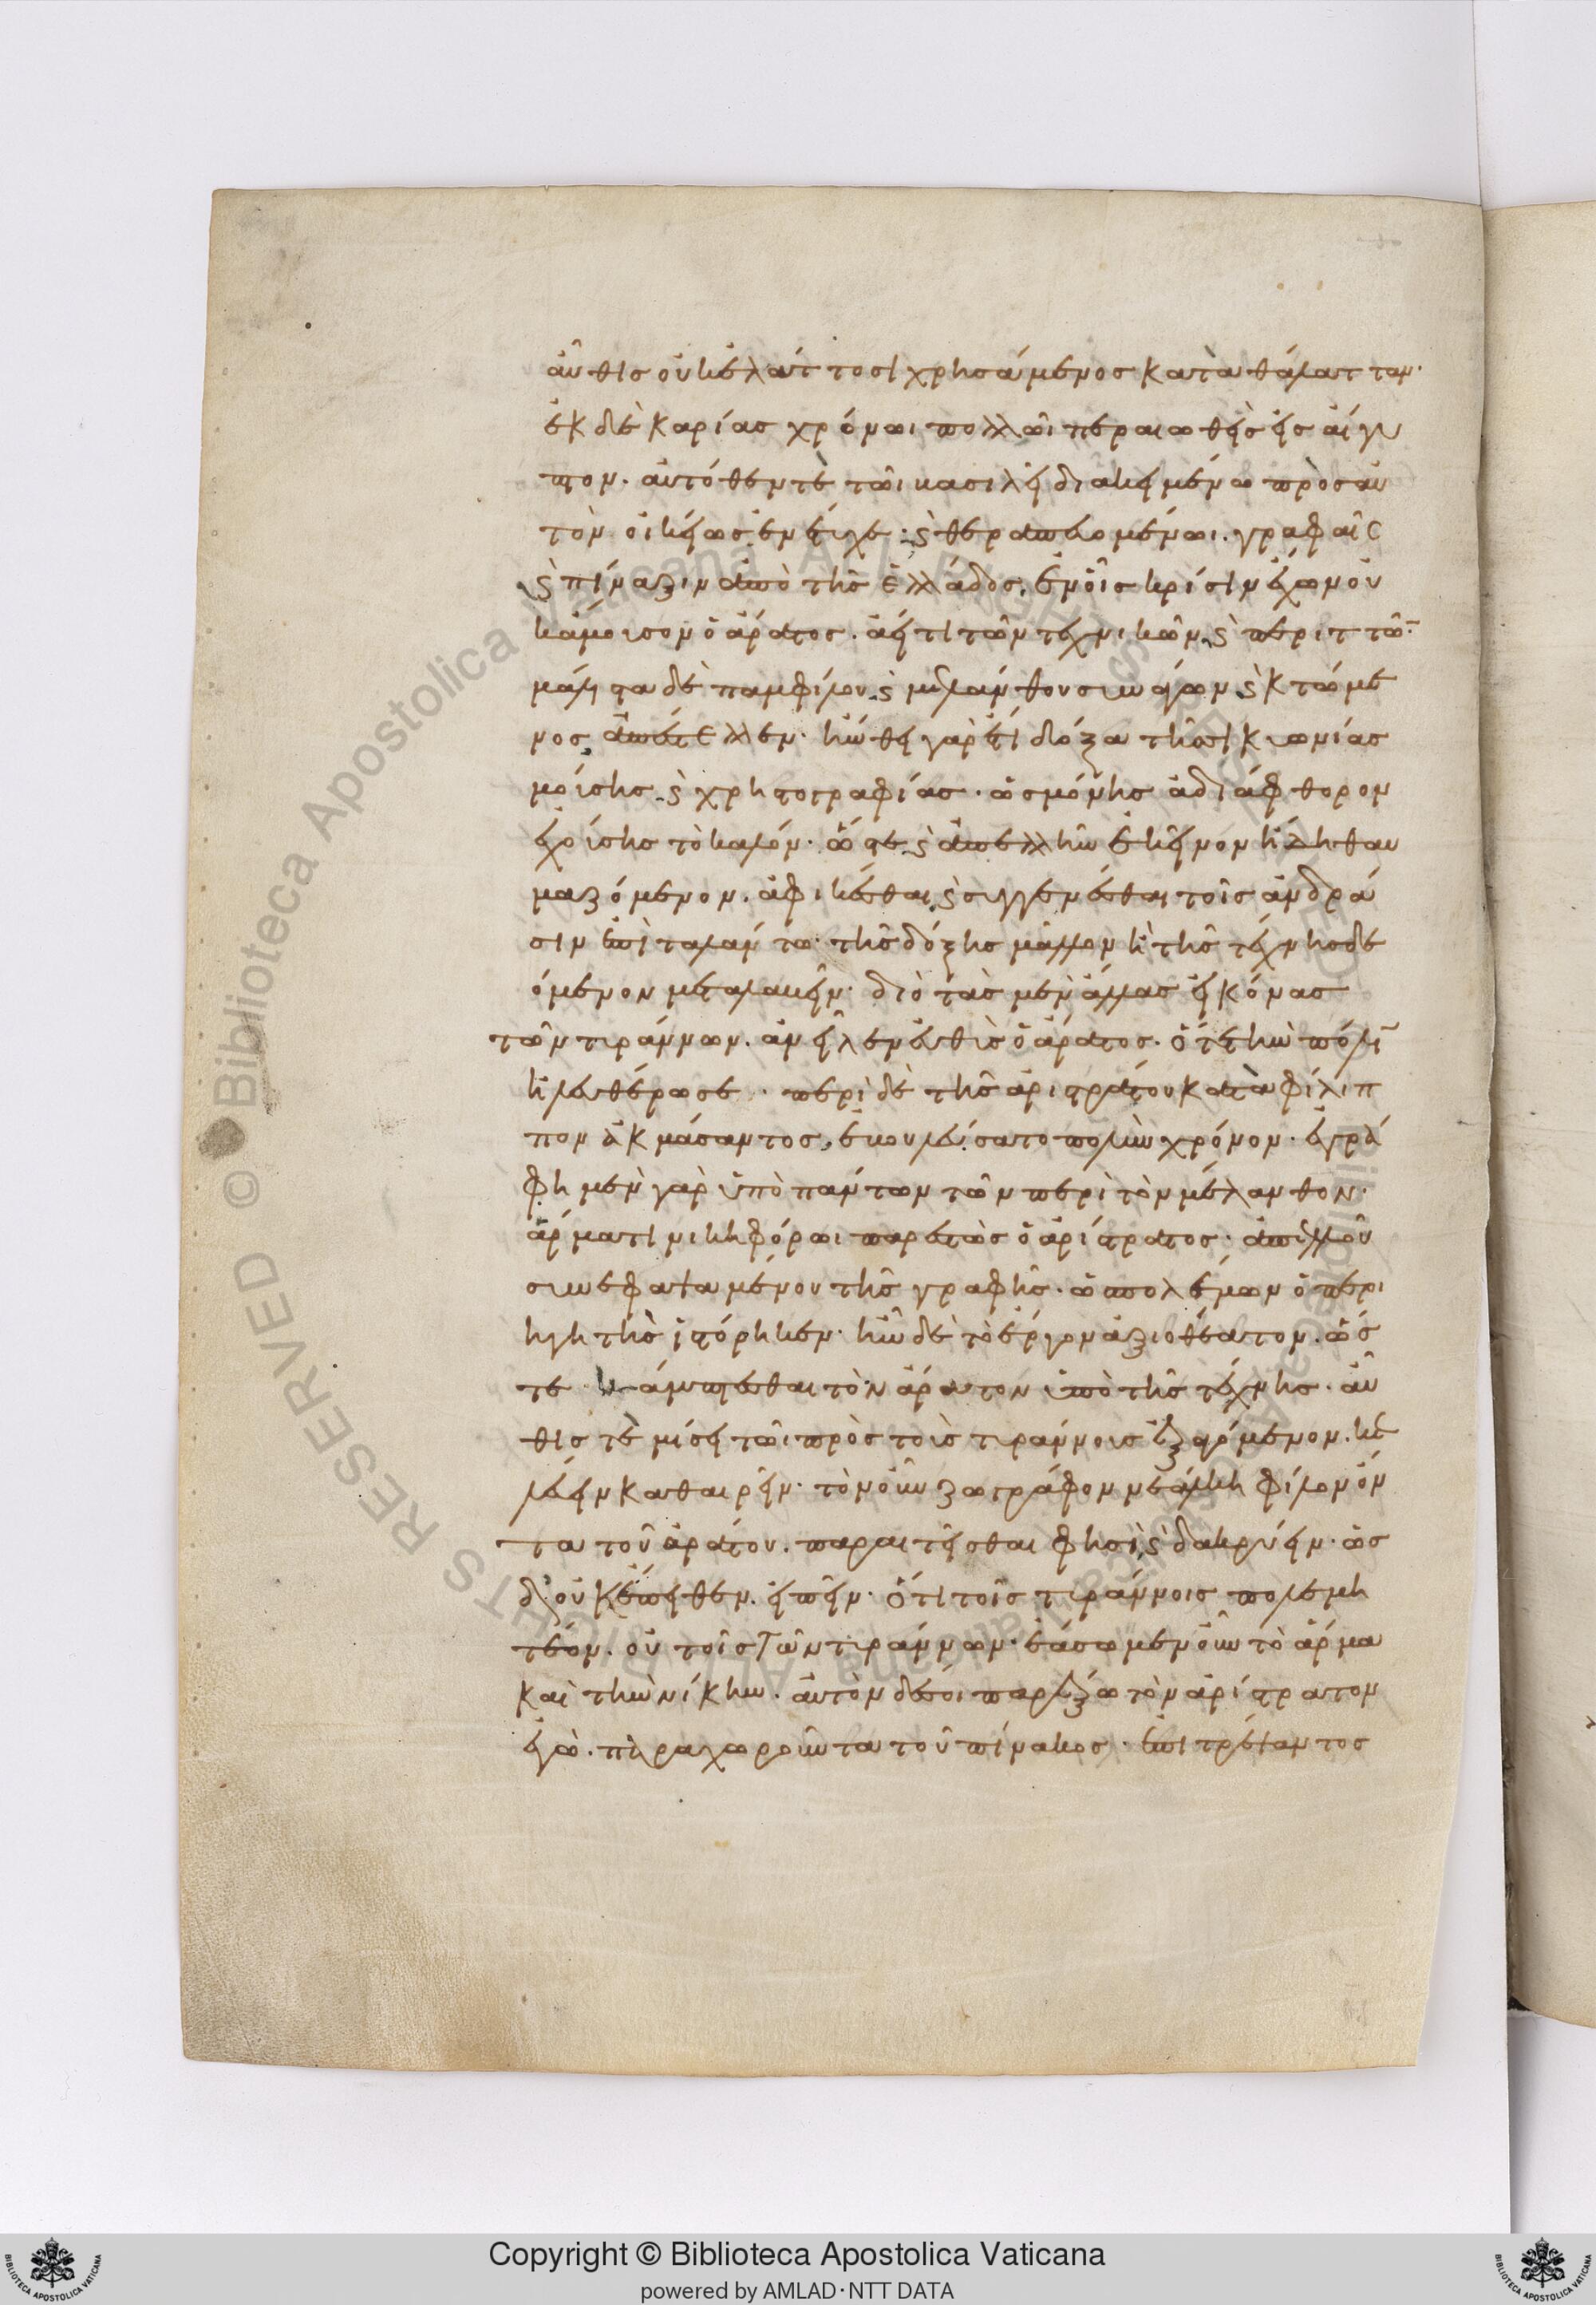 αὖθις οὐκ ἐλάττοσι χρησάμενος κατὰ θάλατταν·
ἐκ δὲ καρίας χρόνωι πολλῶι περαιωθεὶς εἰς αἴγυ
πτον. αὐτόθεν τὲ τῶι βασιλεῖ διακειμένω πρὸς αὐ
τὸν οἰκείως ἐνέτυχε· ϗ θεραπευομένωι. γραφαῖς
ϗ πίναξιν ἀπὸ τῆς ἑλλάδος, ἐν οἷς κρίσιν ἔχων οὐ
κ ἄμουσον ὁ ἄρατος. ἀεί τι τῶν τεχνικῶν ϗ περιττῶν·
μάλιστα δὲ παμφίλου ϗ μελάνθου συνάγων ϗ κτώμε
νος ἀπέστελλεν· ἤνθει γὰρ ἔτι δόξα τῆς σικυωνίας
μούσης ϗ χρηστογραφίας· ὡς μόνης ἀδιάφθορον
ἐχούσης τὸ καλόν· ὥστε ϗ ἀπελλῆν ἐκεῖνον ἤδη θαυ
μαζόμενον. ἀφικέσθαι ϗ συγγενέσθαι τοῖς ἀνδρά
σιν ἐπὶ ταλάντω· τῆς δόξης μᾶλλον ἢ τῆς τέχνης δε
όμενον μεταλαβεῖν· διὸ τὰς μὲν ἄλλας εἰκόνας
τῶν τυράννων. ἀνεῖλεν εὐθὺς ὁ ἄρατος· ὅτε τὴν πόλιν
ἠλευθέρωσε· περὶ δὲ τῆς ἀριστράτου κατὰ φίλιπ
πον ἀκμάσαντος, ἐβουλεύσατο πολὺν χρόνον· ἐγρά
φη μὲν γὰρ ὑπὸ πάντων τῶν περὶ τὸν μέλανθον·
ἅρματι νικηφόρωι παρεστὼς ὁ ἀρίστρατος· ἀπελλοῦ
συνεφαψαμένου τῆς γραφῆς· ὡς πολέμων ὁ περι
ηγητὴς ἱστόρηκεν· ἦν δὲ τὸ ἔργον ἀξιοθέατον. ὥσ
τε κάμπτεσθαι τὸν ἄρατον ὑπὸ τῆς τέχνης. αὖ
θίς τε μίσει τῶι πρὸς τοὺς τυράννους ἐξαγόμενον. κε
λεύειν καθαιρεῖν· τὸν οὖν ζωγράφον νεάλκη φίλον ὄν
τα τοῦ ἀράτου. παραιτεῖσθαι φησὶ ϗ δακρύειν· ὡς
δ' οὐκ ἔπειθεν. εἰπεῖν· ὅτι τοῖς τυράννοις πολεμη
τέον. οὐ τοῖς τῶν τυράννων· ἐάσωμεν οὖν τὸ ἅρμα
καὶ τὴν νίκην. αὐτὸν δέ σοι παρέξω τὸν ἀρίστρατον
ἐγὼ. παραχωροῦντα τοῦ πίνακος· ἐπιτρέψαντος